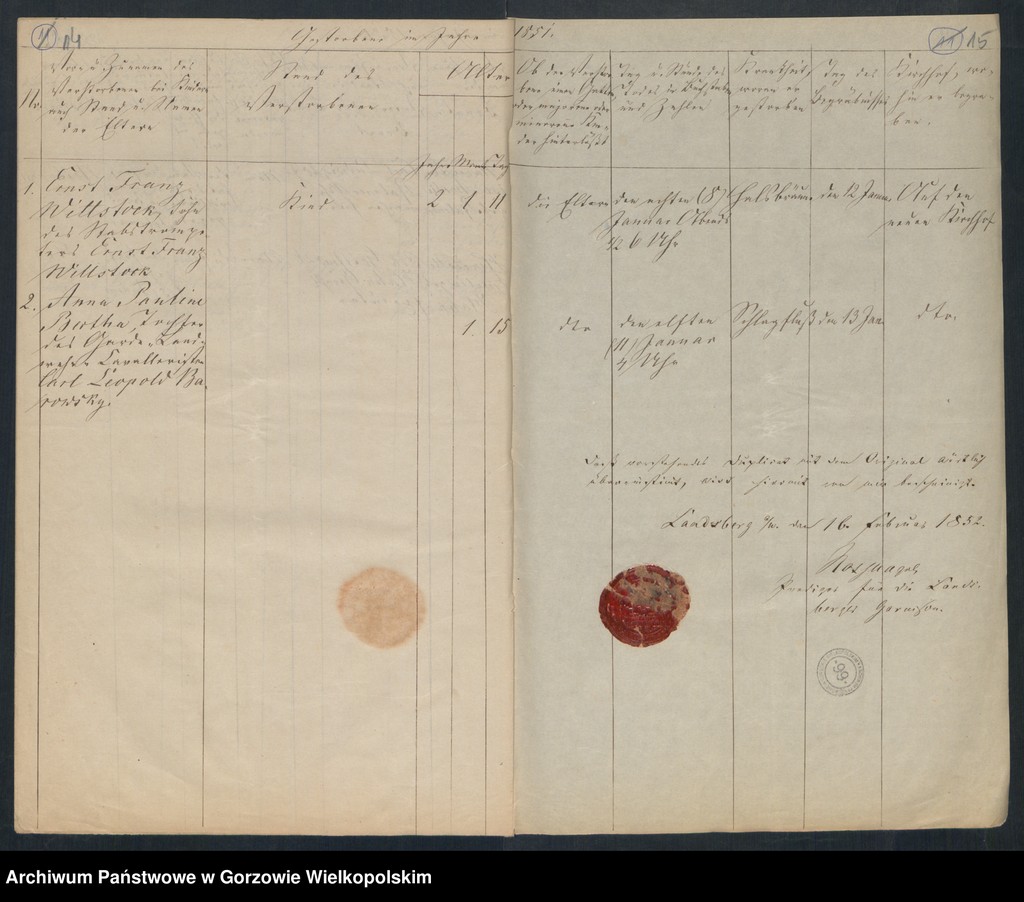 11 14
Gestorbene im Jahre 1851.
11 15
Nr.
Vor- u. Zunamen des
Verstorbenen bei Kindern
auch Stand u. Namen
der Eltern
Stand des
Verstorbenen
Alter
Jahr Monat Tag
Ob der Verstor-
bene einen Gatten
oder majorenne oder
minorenne Kin-
der hinterläßt
Tag u. Stunde des
Todes in Buchstaben
und Zahlen
Krankheit,
woran er
gestorben
Tag des
Begräbnisses
Kirchhof, wo-
hin er begra-
ben.
1. Ernst Franz
Willstock, Sohn
des Stabstrompe-
ters Ernst Franz
Willstock
Kind
2 1. 11
die Eltern
den achten (8)
Januar Abends
1/2 6 Uhr
Halsbräune
den 12 Januar
Auf den
neuen Kirchhof
2. Anna Pauline
Bertha, Tochter
des Garde-Land-
wehr-Cavalleristen
Carl Leopold Ba-
rowsky.
1. 15
dto
den elften
(11) Januar
Uhr
Schlagfluß
den 13 Jan.
dto.
Daß vorstehendes Duplicat mit dem Original wörtlich
übereinstimmt, wird hiermit von mir bescheinigt.
Landsberg a/W. den 16. Februar 1852.
Prediger für die Lands-
berger Garnison.
99
Archiwum Państwowe w Gorzowie Wielkopolskim